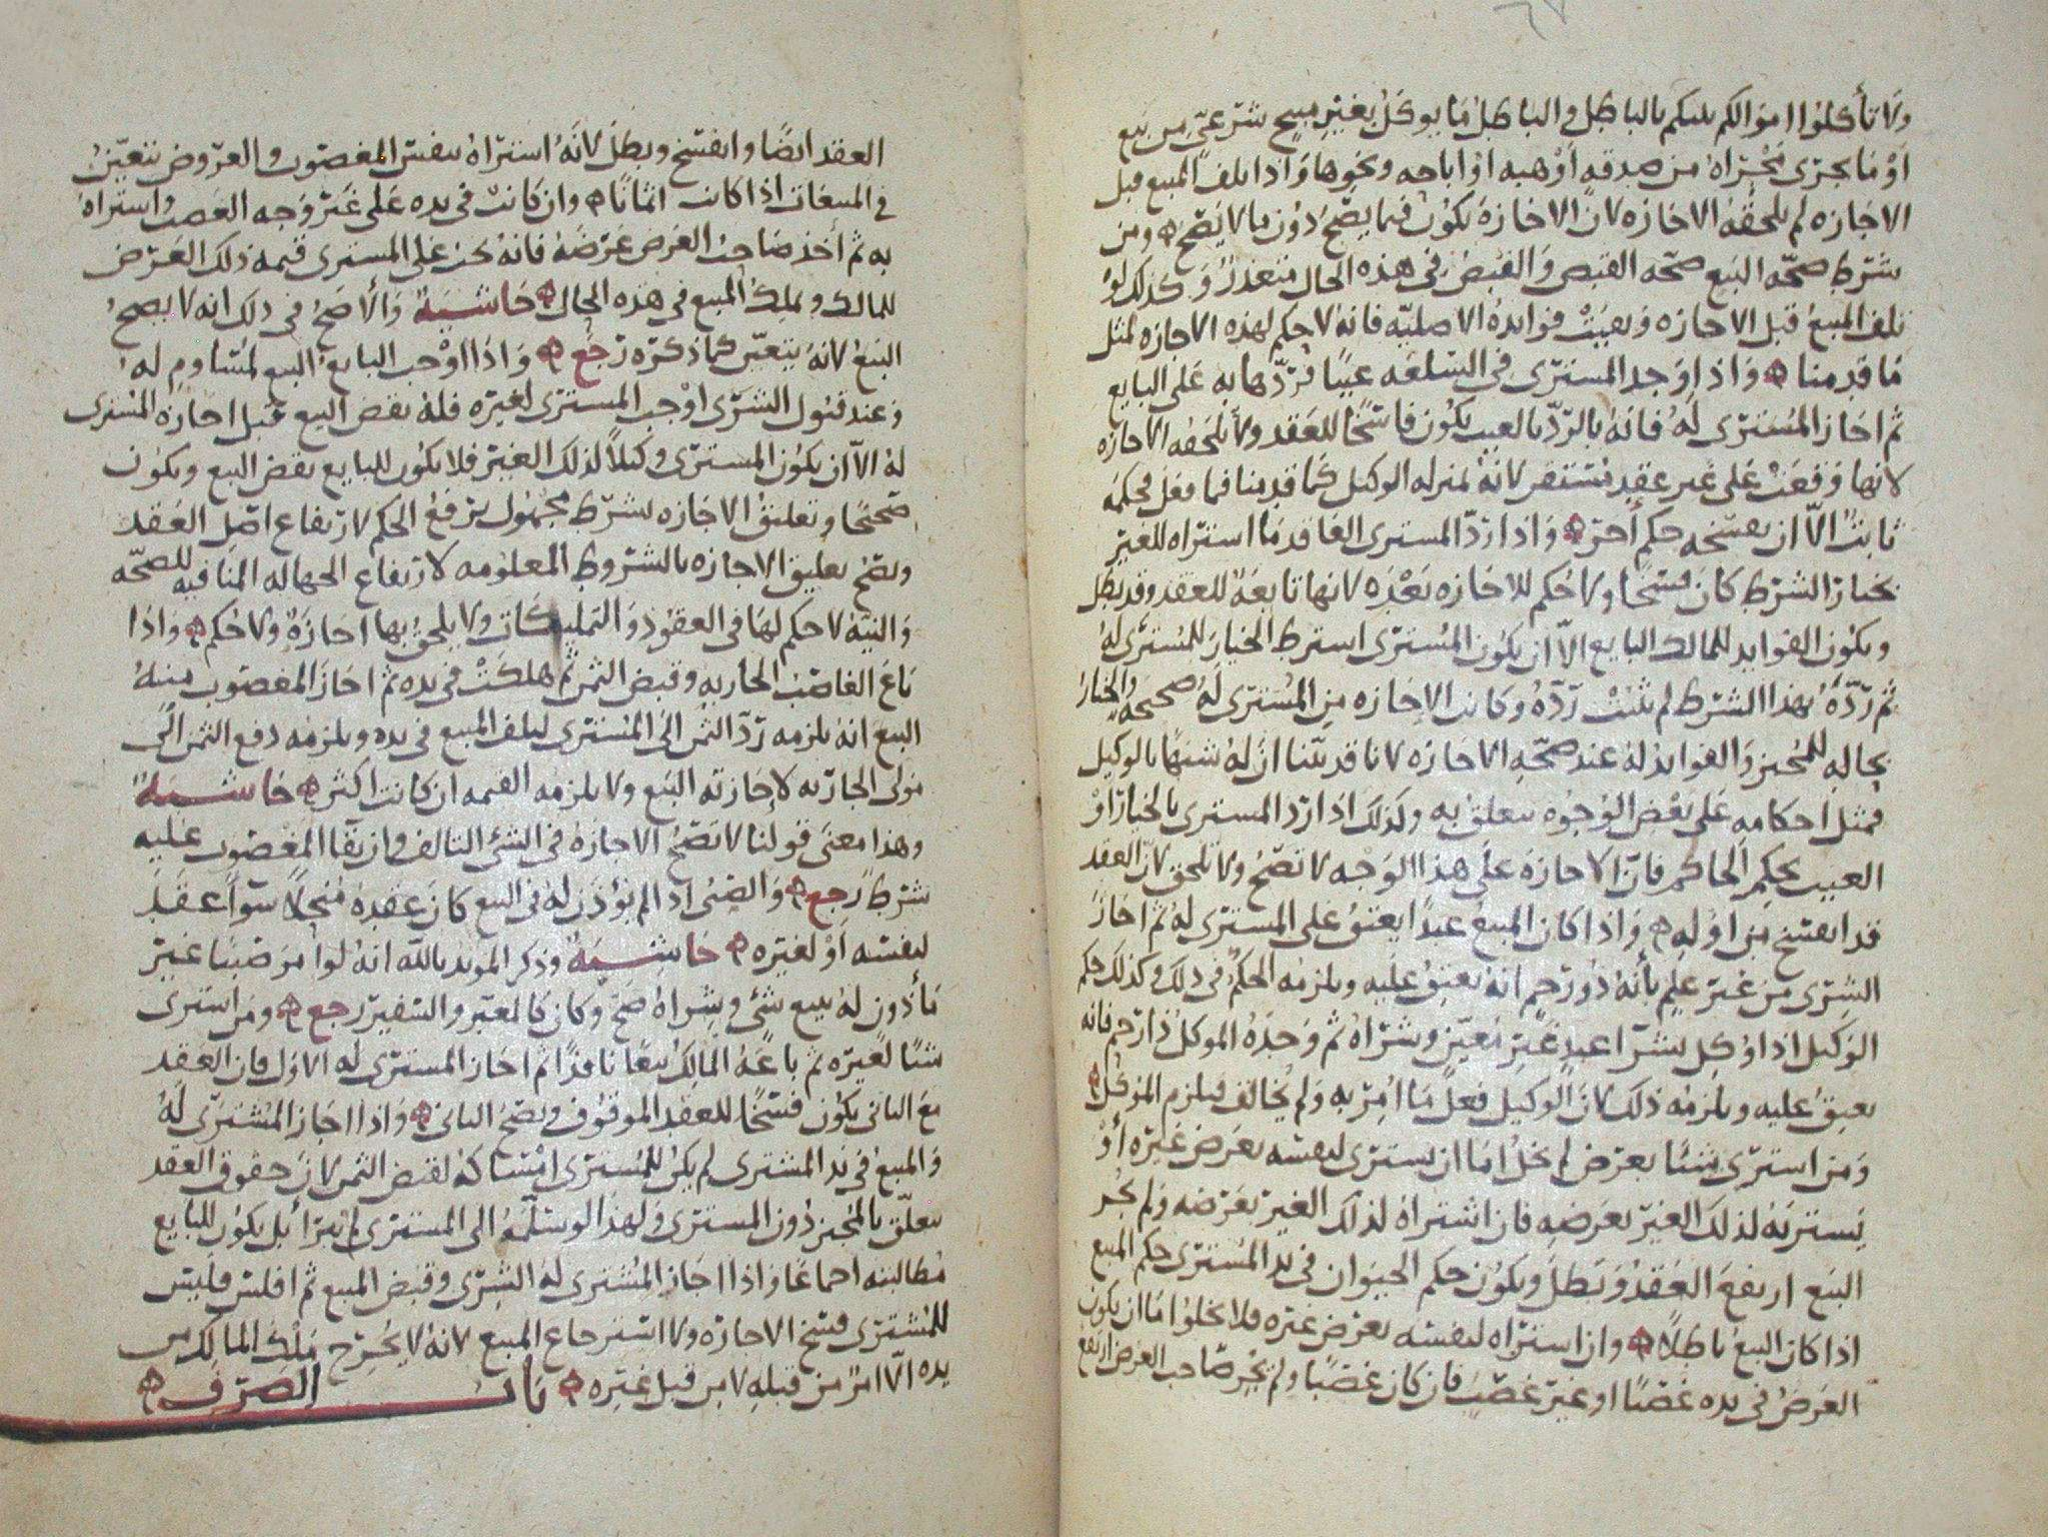 ولا تأكلوا اموالكم بينكم بالباطل والباطل ما يوكل بغير مبيح شرعي من بيع
او ما يجرى مجراه من صدقه او هبه او اباحه ونحوها واذا تلف المبيع قبل
الاجازه لم يلحقه الاجازه لان الاجازة تكون فيما يصح دون ما لا يصح ومن
شرط صحه البيع صحه القبض والقبض في هذه الحال متعذر وكذلك لو
تلف المبيع قبل الاجازه وبقيت فوايده الاصليه فانه لا حكم لهذه الاجازه لمثل
ما قدمنا واذا وجد المشترى في السلعه عيبا فردها به على البايع
ثم اجاز المشترى له فانه بالرد بالعيب يكون فاسخا للعقد ولا يلحقه الاجازه
لانها وقعت على غير عقد مستقر لانه بمنزله الوكيل كما قدمنا فما فعل فحكمه
ثابت الا ان يفسخه حكم آخر واذا رد المشترى العاقد ما اشتراه للغير
بخيار الشرط كان فسخا ولا حكم للاجازه بعده لانها تابعة للعقد وقد بطل
ويكون الفوايد للمالك البايع الا ان يكون المشترى اشترط الخيار للمشترى له
ثم رده بهذا الشرط لم يثبت رده وكانت الاجازه من المشترى له صحيحة والخيار
بحاله للمجيز والفوايد له عند صحه الاجازه لانا قد بينا ان له شبها بالوكيل
فمثل احكامه على بعض الوجوه يتعلق به وكذلك اذا رد المشترى بالخيار او
العيب بحكم الحاكم فان الاجازة على هذا الوجه لا تصح ولا تلحق لان العقد
قد انفسخ من اوله واذا كان المبيع عبدا يعتق على المشترى له ثم اجاز
الشرى من غير علم بأنه ذو رحم انه يعتق عليه ويلزمه الحكم في ذلك وكذلك حكم
الوكيل اذا وكل بشرا عبد غير معين وشراه ثم وجده الموكل ذا رحم فانه
يعتق عليه ويلزمه ذلك لان الوكيل فعل ما امر به ولم يخالف فيلزم الموكل
ومن اشترى شيئا بعرض لم يخل اما ان يشترى لنفسه بعرض غيره أو
يشتريه لذلك الغير بعرضه فان اشتراه لذلك الغير بعرضه ولم يجز
البيع ارتفع العقد وبطل ويكون حكم الحيوان في يد المشترى حكم المبيع
اذا كان البيع باطلا وان اشتراه لنفسه بعرض غيره فلا يخلوا اما ان يكون
العرض في يده غصبا او غير غصب فان كان غصبا ولم يجز صاحب العرض ارتفع
العقد ايضا وانفسخ وبطل لانه اشتراه بنفس المغصوب والعروض تتعين
في المبيعات اذا كانت اثمانا وان كانت في يده على غير وجه الغصب واشتراه
به ثم أخذ صاحب العرض عرضه فانه يجب على المشترى قيمه ذلك العرض
للمالك ويملك المبيع في هذه الحال حاشية والأصح في ذلك انه لا يصح
البيع لانه يتعين كما ذكره رجع واذا اوجب البايع البيع لمساوم له
وعند قبول الشرى اوجب المشترى لغيره فله نقض البيع قبل اجازه المشترى
له الا ان يكون المشترى وكيلا لذلك الغير فلا يكون للبايع نقض البيع ويكون
صحيحا وتعليق الاجازه بشرط مجهول يرفع الحكم لارتفاع اصل العقد
ويصح تعليق الاجازه بالشروط المعلومه لارتفاع الجهاله المنافيه للصحه
والنية لا حكم لها في العقود والتمليكات ولا يلحق بها اجازة ولا حكم واذا
باع الغاصب الجاريه وقبض الثمن ثم هلكت في يده ثم اجاز المغصوب منه
البيع انه يلزمه رد الثمن الى المشترى لتلف المبيع في يده ويلزمه دفع الثمن الى
مولى الجاريه لاجازته البيع ولا يلزمه القيمه ان كانت اكثر حاشية
وهذا معنى قولنا لا تصح الاجازة في الشئ التالف وان بقا المغصوب عليه
شرط رجع والصبى اذا لم يؤذن له في البيع كان عقده منحلا سوآء عقد
لنفسه او لغيره حاشية وذكر المويد بالله انه لو امر صبيا غير
مأذون له ببيع شئ وشراه صح وكان كالمعبر والسفير رجع ومن اشترى
شيئا لغيره ثم باعه المالك بيعا نافذا ثم اجاز المشترى له الاول فان العقد
مع الثانى يكون فسخا للعقد الموقوف ويصح الثانى واذا اجاز المشترى له
والمبيع في يد المشترى لم يكن للمشترى امساكه لقبض الثمن لان حقوق العقد
يتعلق بالمجيز دون المشترى ولهذا لو سلمه الى المشترى لم يبرا بل يكون للبايع
مطالبته اجماعا واذا اجاز المشترى له الشرى وقبض المبيع ثم افلس فليس
للمشترى فسخ الاجازه ولا استرجاع المبيع لانه لا يخرج ملك المالك من
يده الا امر من قبله لا من قبل غيره باب الصرف